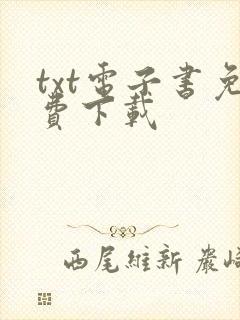 txt電子書免
費下載
西尾維新 巖崎